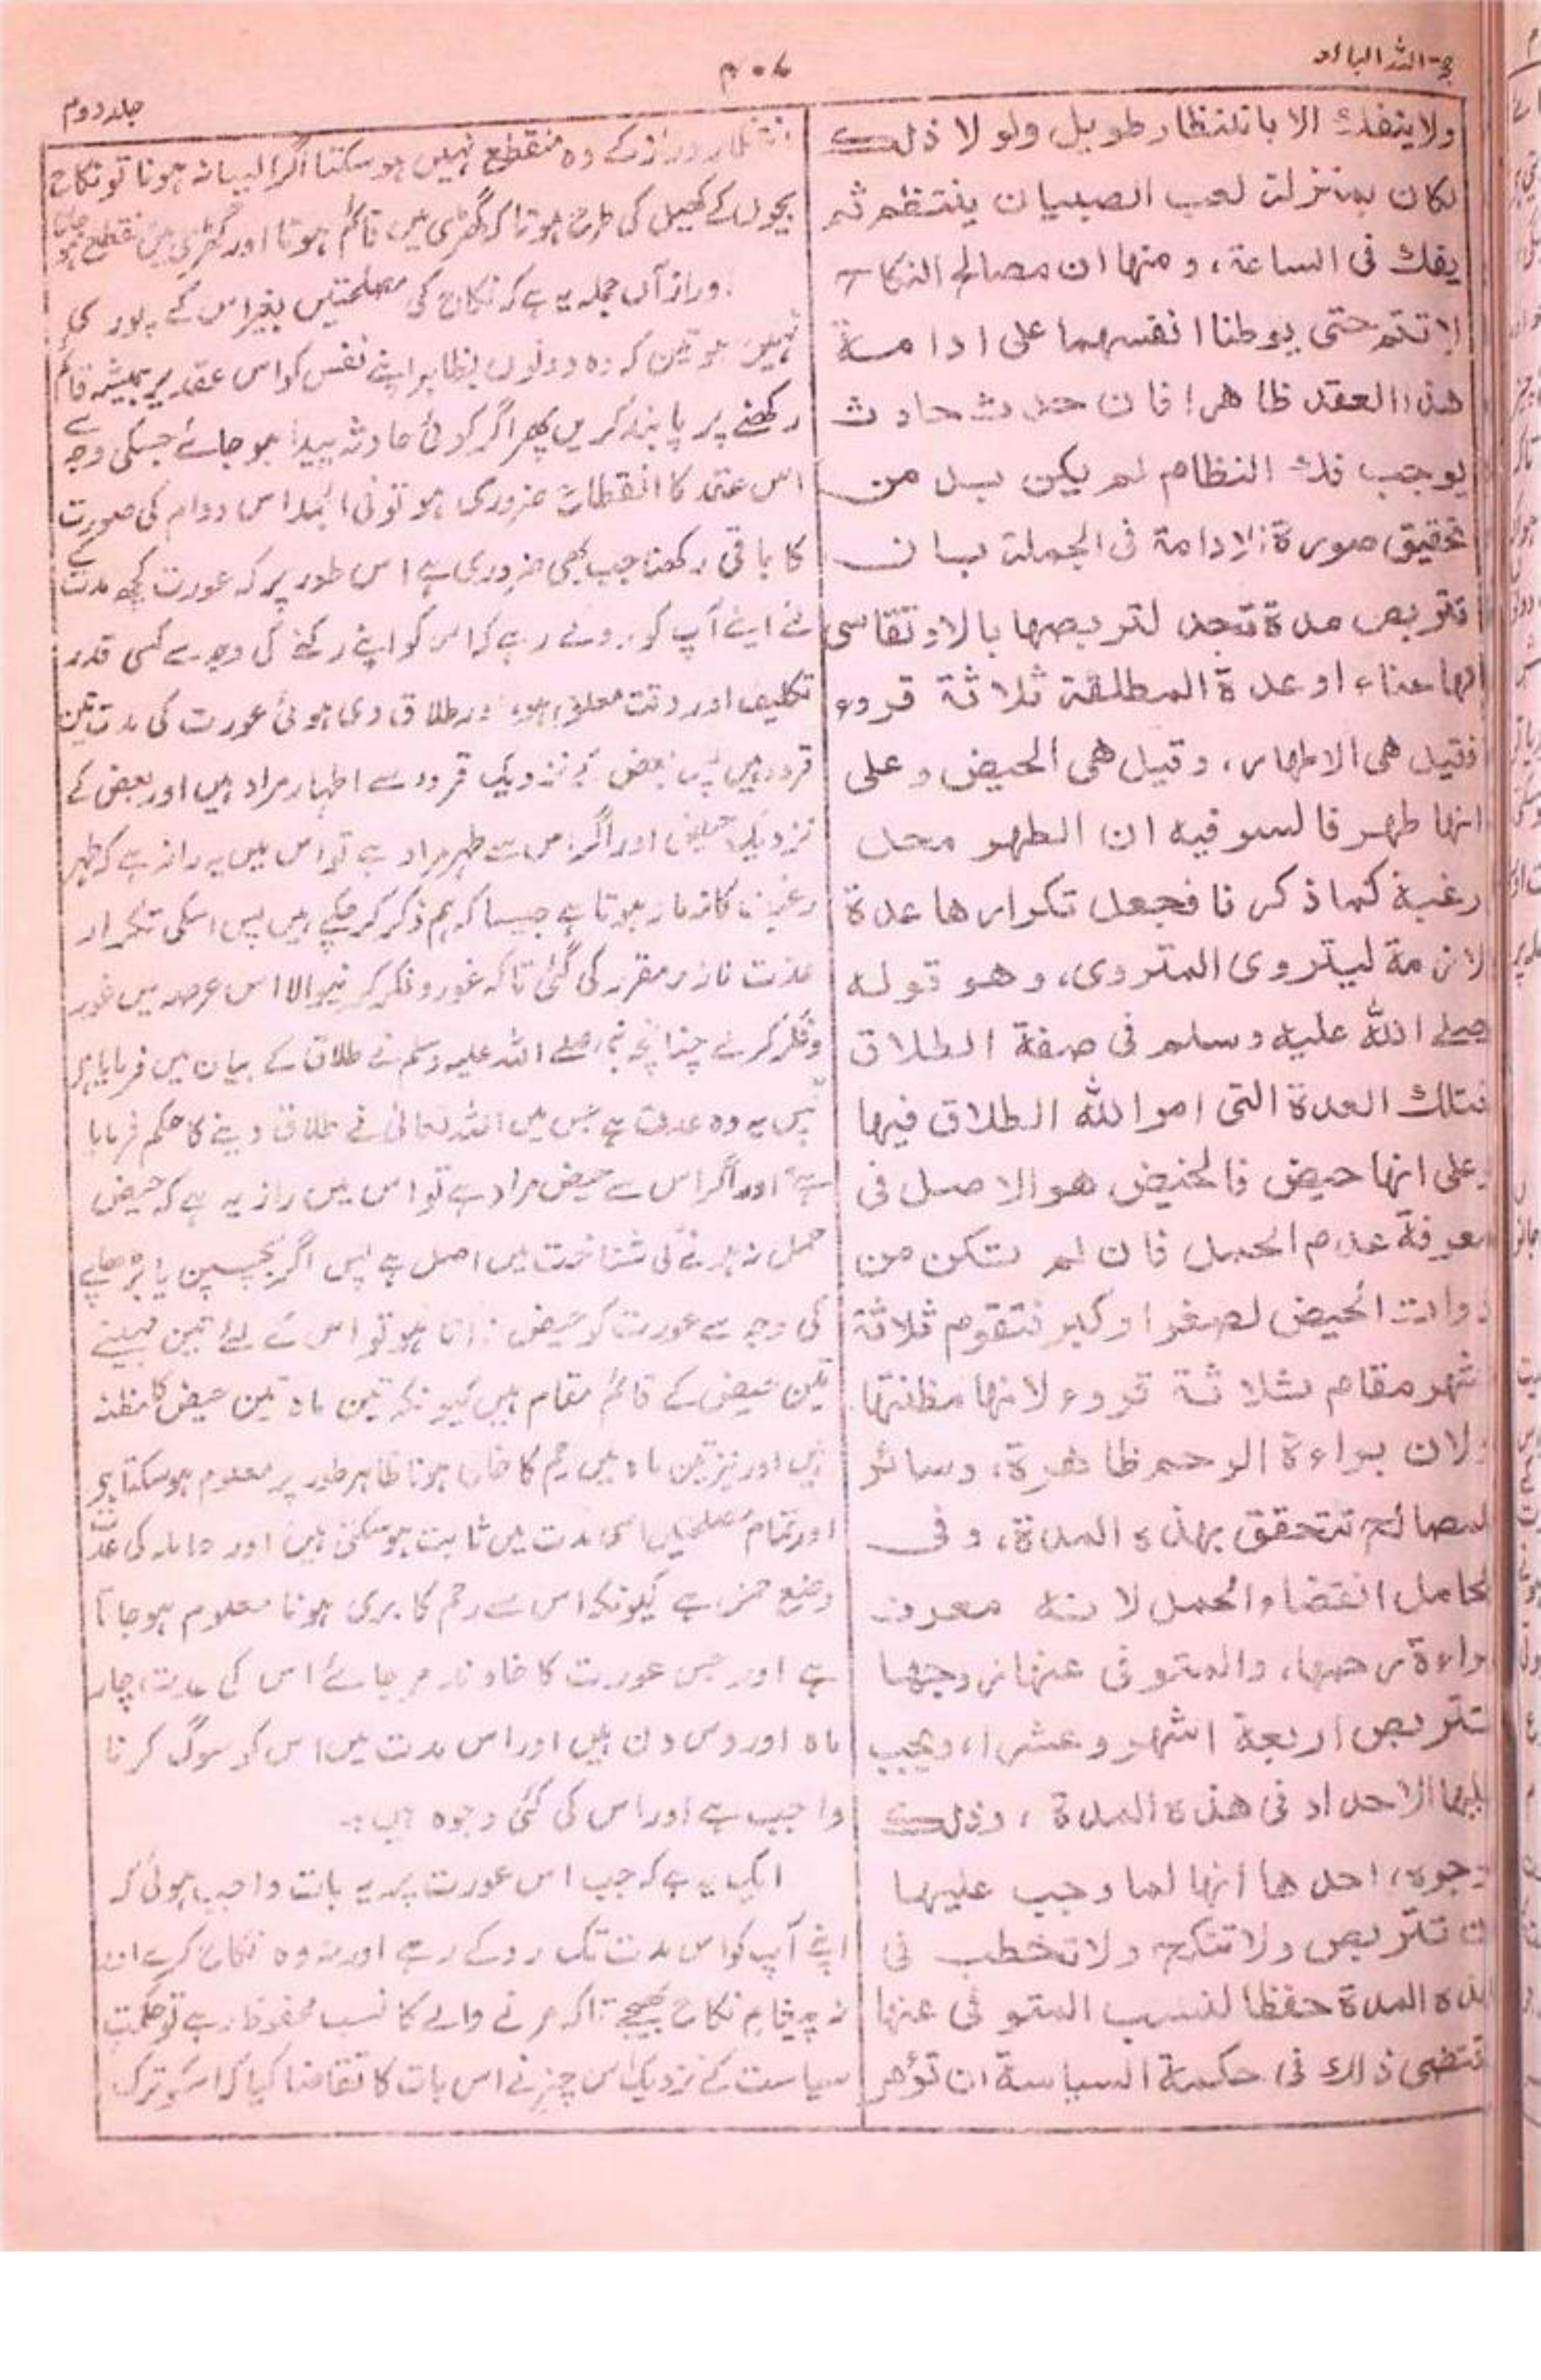 حجۃ اللہ البالغہ
جلد دوم
ولا ينفك الا بانتظار طويل ولو لا ذلك
لكان بمنزلة لعب الصبيان ينتظم ثم
يفك فى الساعة، ومنها ان مصالح النكاح
لا تتم حتى يوطنا انفسهما على ادامة
هذا العقد ظاهرا فان حدث حادث
يوجب فك النظام لم يكن بد من
تحقيق صورة الادامة فى الجملة بان
تتربص مدة تجد لتربصها بالا وتقاسى
لها عناء او عدة المطلقة ثلاثة قروء
فقيل هى الاطهار، وقيل هى الحيض وعلى
انها طهر فالسر فيه ان الطهر محل
رغبة كما ذكرنا فجعل تكرارها عدة
لازمة ليتروى المتروى، وهو قوله
صلے الله عليه وسلم فى صفة الطلاق
فتلك العدة التى امر الله الطلاق فيها
وعلى انها حيض فالحيض هو الاصل فى
معرفة عدم الحمل فان لم تكن من
ذوات الحيض لصغر او كبر فتقوم ثلاثة
اشهر مقام ثلاثة قروء لانها مظنتها
ولان براءة الرحم ظاهرة، وسائر
المصالح تتحقق بهذه المدة، وفى
الحامل انقضاء الحمل لانه معرف
براءة رحمها، والمتوفى عنها زوجها
تتربص اربعة اشهر وعشرا، ويجب
عليها الاحداد فى هذه المدة، وذلك
لوجوه، احدها انها لما وجب عليها
ان تتربص ولا تنكح ولا تخطب فى
هذه المدة حفظا لنسب المتوفى عنها
اقتضى ذلك فى حكمة السياسة ان تؤمر
انتظار دراز کے وہ منقطع نہیں ہو سکتا اگر ایسا نہ ہوتا تو نکاح
بچوں کے کھیل کی طرح ہوتا کہ گھڑی میں قائم ہوتا اور گھڑی میں منقطع ہو جاتا
ورازآں جملہ یہ ہے کہ نکاح کی مصلحتیں بغیر اس کے پوری
نہیں ہوتیں کہ وہ دونوں بظاہر اپنے نفس کو اس عقد پر ہمیشہ قائم
رکھنے پر پابند کریں پھر اگر کوئی حادثہ پیدا ہو جائے جسکی وجہ سے
اس عقد کا انقطاع ضروری ہو تو فی الجملہ اس دوام کی صورت
کا باقی رکھنا جب بھی ضروری ہے اس طور پر کہ عورت کچھ مدت کے
لئے اپنے آپ کو روکے رہے کہ اس کو اپنے رکنے کی وجہ سے کسی قدر
تکلیف اور دقت معلوم ہو، اور طلاق دی ہوئی عورت کی مدت تین
قروء ہیں پس بعض کے نزدیک قروء سے اطہار مراد ہیں اور بعض کے
نزدیک حیض اور اگر اس سے طہر مراد ہے تو اس میں یہ راز ہے کہ طہر
رغبت کا زمانہ ہوتا ہے جیسا کہ ہم ذکر کر چکے ہیں پس اسکی تکرار
عدت لازمہ مقرر کی گئی تاکہ غور و فکر کرنیوالا اس عرصہ میں غور
و فکر کرے چنانچہ نبی صلے اللہ علیہ وسلم نے طلاق کے بیان میں فرمایا ہے
پس یہ وہ عدت ہے جس میں اللہ تعالیٰ نے طلاق دینے کا حکم فرمایا
ہے اور اگر اس سے حیض مراد ہے تو اس میں راز یہ ہے کہ حیض
حمل نہ ہونے کی شناخت میں اصل ہے پس اگر بچپن یا بڑھاپے
کی وجہ سے عورت کو حیض نہ آتا ہو تو اس کے لئے تین مہینے
تین حیض کے قائم مقام ہیں کیونکہ تین ماہ تین حیض کا مظنہ
ہیں اور نیز تین ماہ میں رحم کا خالی ہونا ظاہر طور پر معلوم ہو سکتا ہے
اور تمام مصلحتیں اسی مدت میں ثابت ہو سکتی ہیں اور حاملہ کی عدت
وضع حمل ہے کیونکہ اس سے رحم کا بری ہونا معلوم ہو جاتا
ہے اور جس عورت کا خاوند مر جائے اس کی عدت چار
ماہ اور دس دن ہیں اور اس مدت میں اس کو سوگ کرنا
واجب ہے اور اس کی کئی وجوہ ہیں:-
ایک یہ ہے کہ جب اس عورت پر یہ بات واجب ہوئی کہ
اپنے آپ کو اس مدت تک روکے رہے اور نہ وہ نکاح کرے اور
نہ پیغام نکاح بھیجے تاکہ مرنے والے کا نسب محفوظ رہے تو حکمت
سیاست کے نزدیک اس چیز نے اس بات کا تقاضا کیا کہ اسکو ترک